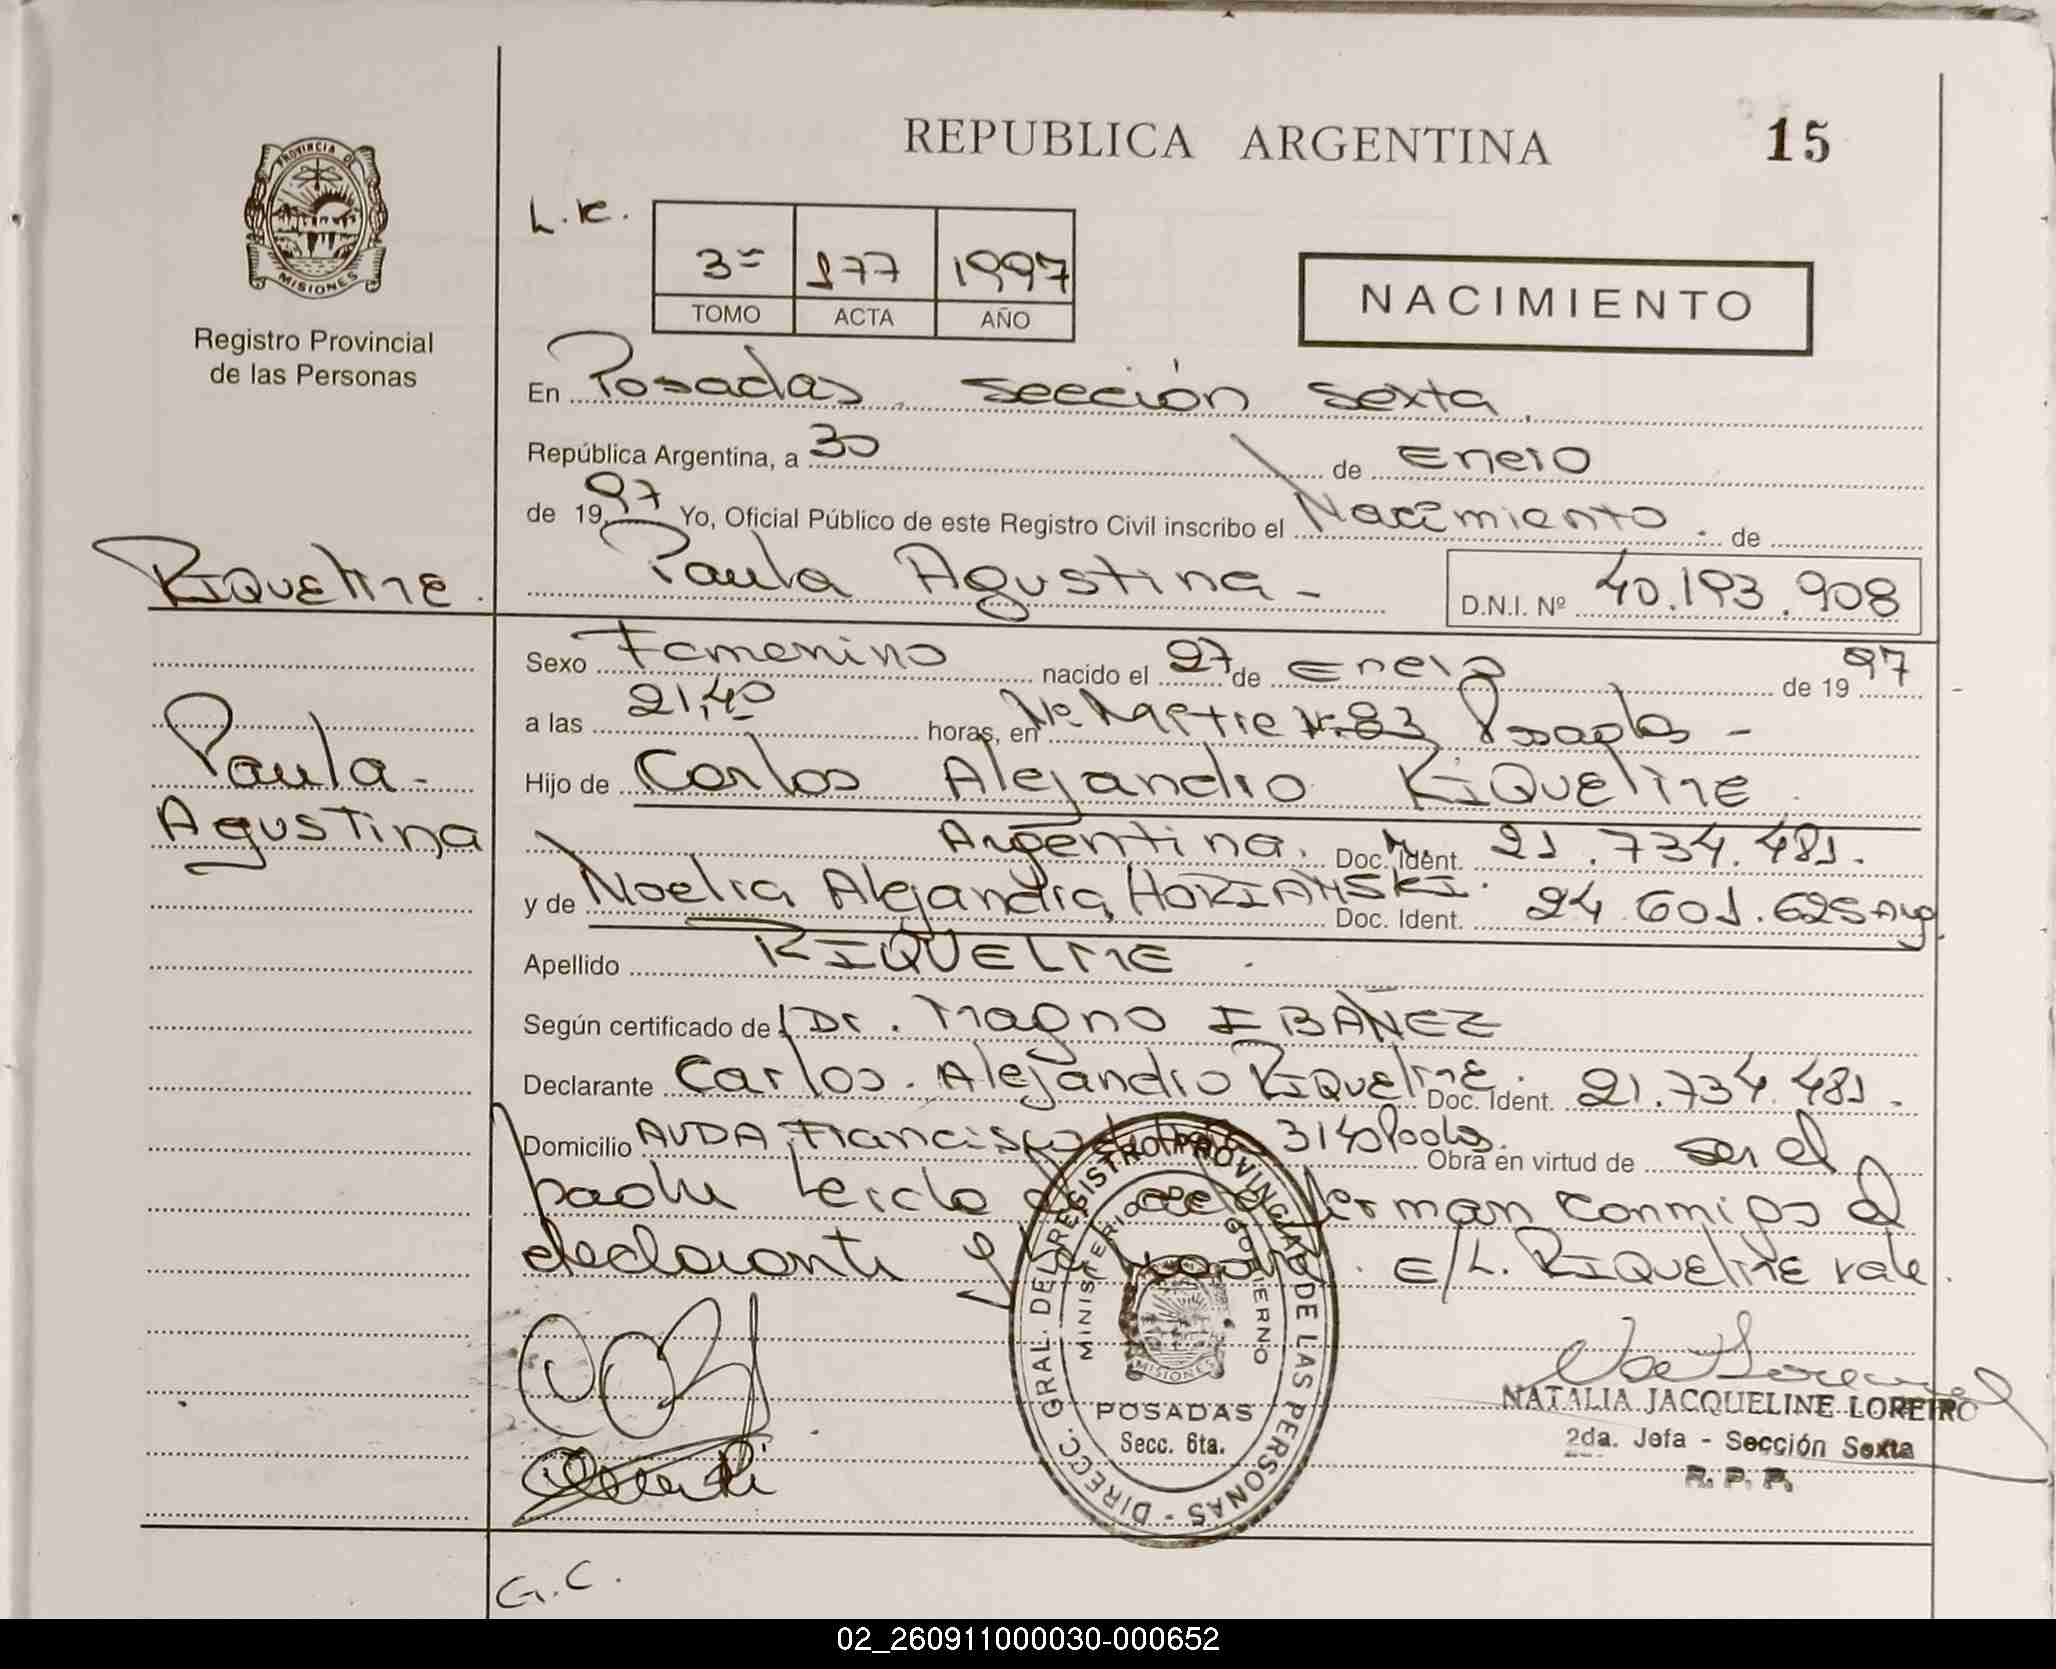 REPUBLICA ARGENTINA
15
PROVINCIA DE
MISIONES
Registro Provincial
de las Personas
L.R.
3º 177 1997
TOMO ACTA AÑO
NACIMIENTO
En Posadas, sección sexta,
República Argentina, a 30 de Enero
de 1997 Yo, Oficial Público de este Registro Civil inscribo el Nacimiento. de
RIQUElME.
Paula Agustina -
D.N.I. Nº 40.193.908
Sexo Femenino nacido el 27 de Enero de 1997
a las 21,40 horas, en Posadas -
Paula -
Agustina
Hijo de Carlos Alejandro RIQUElME
Argentina. Doc. Ident. 21.734.481.
y de Noelia Alejandra Doc. Ident. 24.601.625 Arg.
Apellido RIQUELME.
Según certificado de Dr. Magno IBAÑEZ
Declarante Carlos Alejandro RIQUElME. Doc. Ident. 21.734.481.
Domicilio AVDA Francisco de 3140 Pdas. Obra en virtud de ser el
padre leida acta firman conmigo el
declarante y la madre. E/L. RIQUElME vale.
DIRECC. GRAL. DEL REGISTRO PROVINCIAL DE LAS PERSONAS -
MINISTERIO DE GOBIERNO
MISIONES
POSADAS
Secc. 6ta.
NATALIA JACQUELINE LOREIRO
2da. Jefa - Sección Sexta
R. P. P.
G.C.
02_260911000030-000652